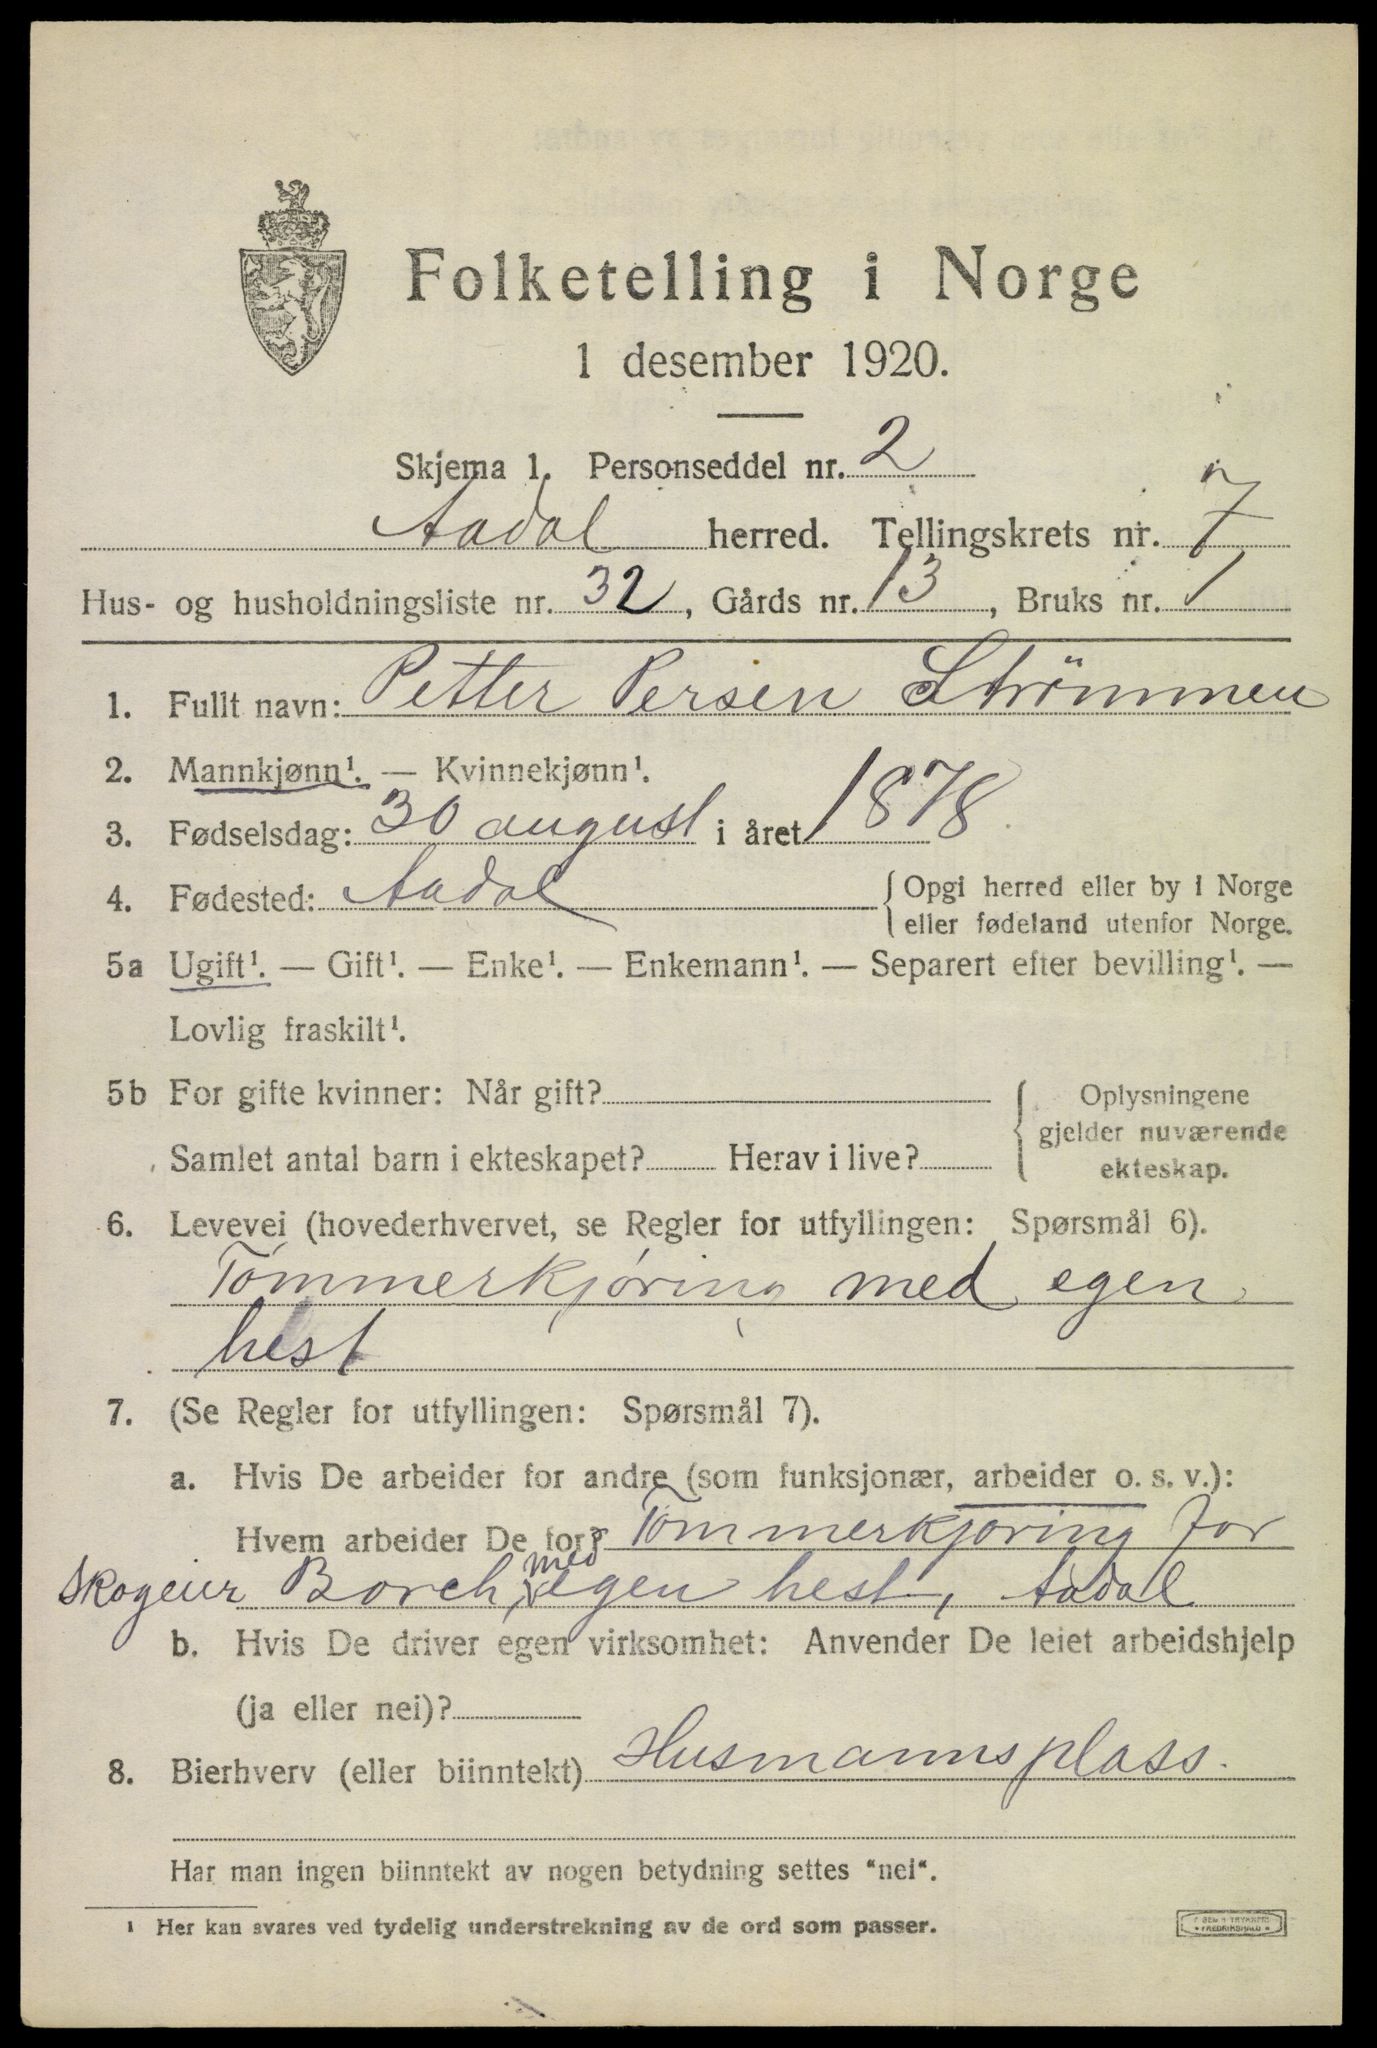 Folketelling i Norge
1 desember 1920.
Skjema 1. Personseddel nr. 2
Aadal herred. Tellingskrets nr. 7
Hus- og husholdningsliste nr. 32, Gårds nr. 13, Bruks nr. 1
1. Fullt navn: Petter Persen Strömmen
2. Mannkjønn¹. — Kvinnekjønn¹.
3. Fødselsdag: 30 august i året 1878
4. Fødested: Aadal { Opgi herred eller by i Norge
eller fødeland utenfor Norge.
5a Ugift¹. — Gift¹. — Enke¹. — Enkemann¹. — Separert efter bevilling¹. —
Lovlig fraskilt¹.
5b For gifte kvinner: Når gift? { Oplysningene
gjelder nuværende
Samlet antal barn i ekteskapet? Herav i live?
ekteskap.
6. Levevei (hovederhvervet, se Regler for utfyllingen: Spørsmål 6).
Tömmerkjöring med egen
hest
7. (Se Regler for utfyllingen: Spørsmål 7).
a. Hvis De arbeider for andre (som funksjonær, arbeider o. s. v.):
Hvem arbeider De for? Tömmerkjöring for
Skogeier Borch, med egen hest, Aadal
b. Hvis De driver egen virksomhet: Anvender De leiet arbeidshjelp
(ja eller nei)?
8. Bierhverv (eller biinntekt) Husmannsplass.
Har man ingen biinntekt av nogen betydning settes "nei".
¹ Her kan svares ved tydelig understrekning av de ord som passer.